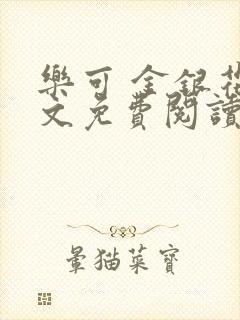 樂可 金銀花
文免費閱讀
暈猫菜寶